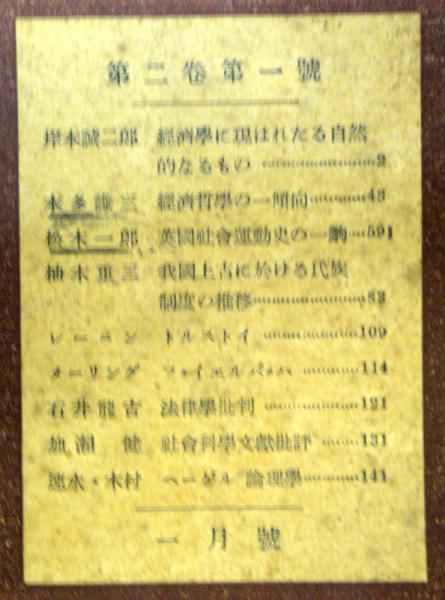 第二卷第一號
岸本誠二郎 經濟學に現はれたる自然
的なるもの ……………………2
本多謙三 經濟哲學の一傾向…………43
松木一郎 英國社會運動史の一齣…591
柚木重三 我國上古に於ける氏族
制度の推移……………………83
レーニン トルストイ ………………109
メーリング フォイエルバッハ …………114
石井龍吉 法律學批判 ………………121
加瀬 健 社會科學文獻批評 ………131
速水・木村 ヘーゲル 論理學…………141
一月號